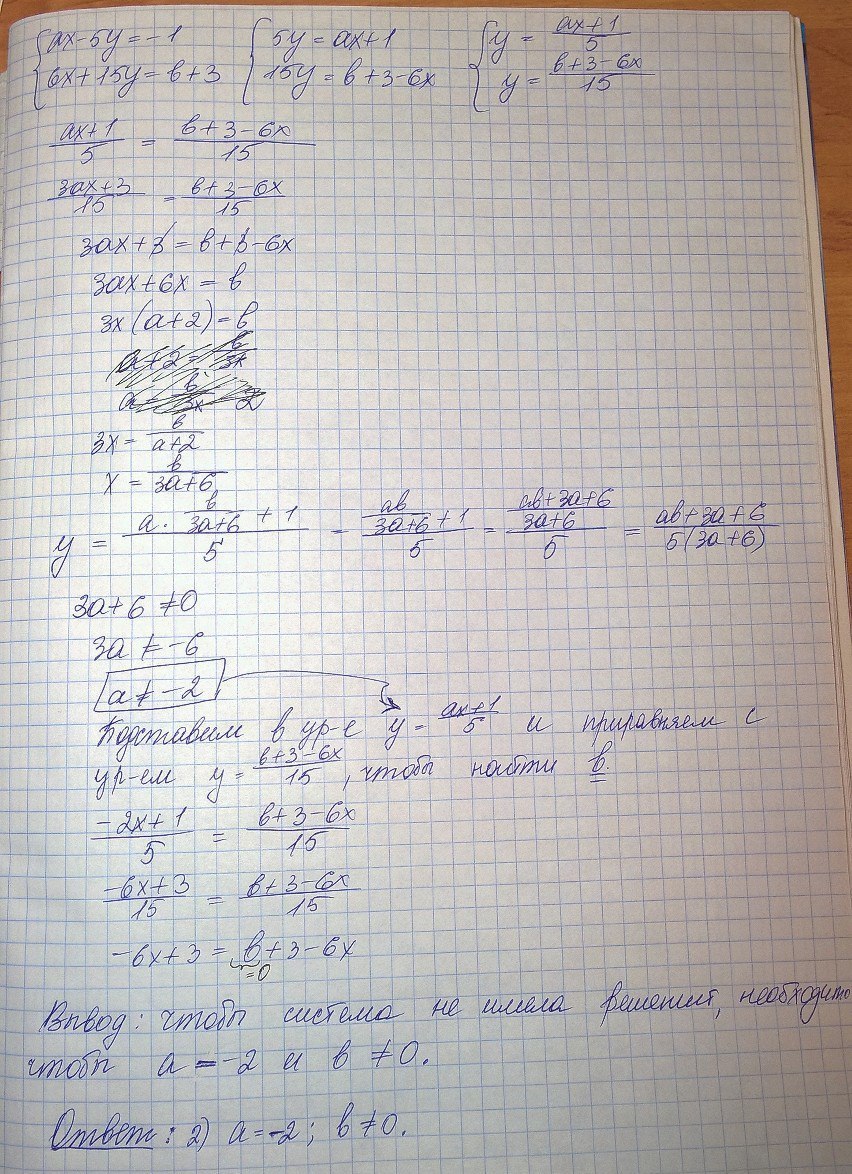 {ax-5y=-1 {5y=ax+1 {y=(ax+1)/5
{6x+15y=в+3 {15y=в+3-6x {y=(в+3-6x)/15
(ax+1)/5 = (в+3-6x)/15
(3ax+3)/15 = (в+3-6x)/15
3ax+3=в+3-6x
3ax+6x=в
3x(a+2)=в
3x=в/(a+2)
x=в/(3a+6)
y = (a·в/(3a+6)+1)/5 = (aв/(3a+6)+1)/5 = ((aв+3a+6)/(3a+6))/5 = (aв+3a+6)/(5(3a+6))
3a+6≠0
3a≠-6
a≠-2
Подставим в ур-е y=(ax+1)/5 и приравняем с
ур-ем y=(в+3-6x)/15, чтобы найти в.
(-2x+1)/5 = (в+3-6x)/15
(-6x+3)/15 = (в+3-6x)/15
-6x+3=в+3-6x
=0
Вывод: чтобы система не имела решений, необходимо
чтобы a=-2 и в≠0.
Ответ: 2) a=-2; в≠0.